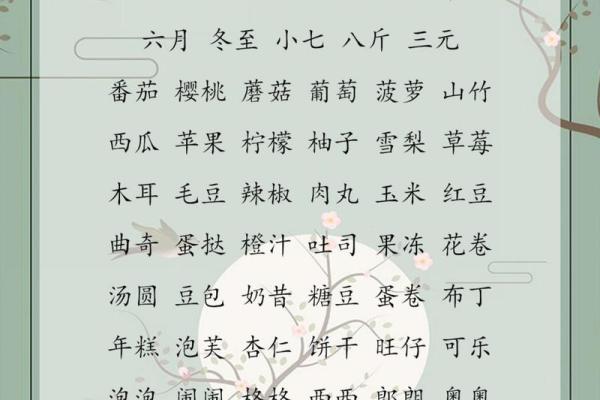 六月 冬至 小七 八斤 三元
番茄 樱桃 蘑菇 葡萄 菠萝 山竹
西瓜 苹果 柠檬 柚子 雪梨 草莓
木耳 毛豆 辣椒 肉丸 玉米 红豆
曲奇 蛋挞 橙汁 吐司 果冻 花卷
汤圆 豆包 奶昔 糖豆 蛋卷 布丁
年糕 泡芙 杏仁 饼干 旺仔 可乐
闹闹 格格 西西